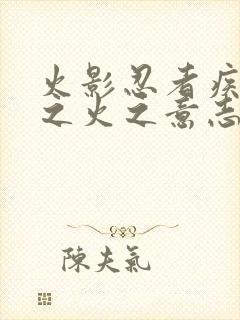 火影忍者疾
之火之意志
陳夫氣